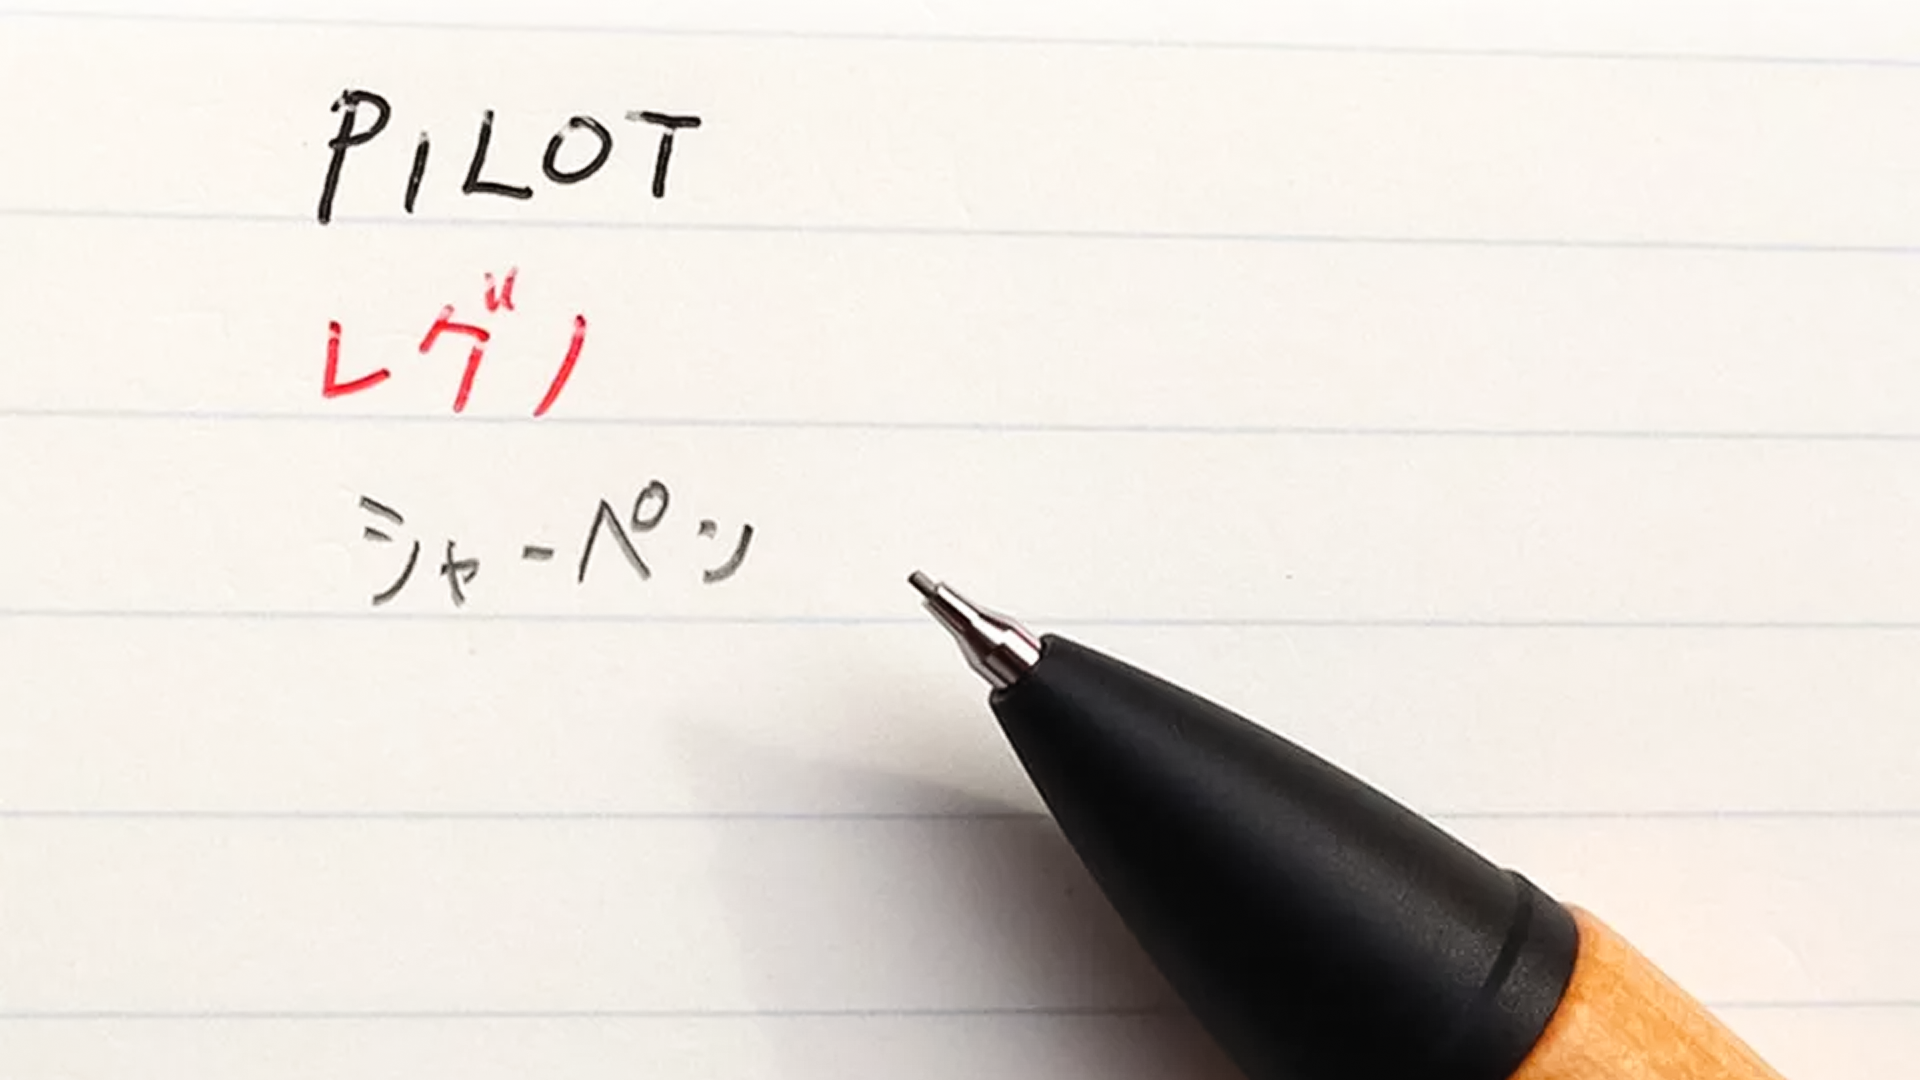 PILOT
レグノ
シャーペン